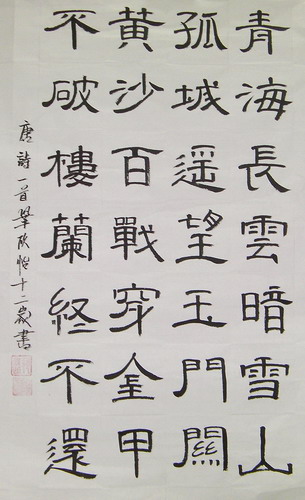 青海長雲暗雪山
孤城遥望玉門關
黃沙百戰穿金甲
不破樓蘭終不還
唐詩一首欣怡十二歲書